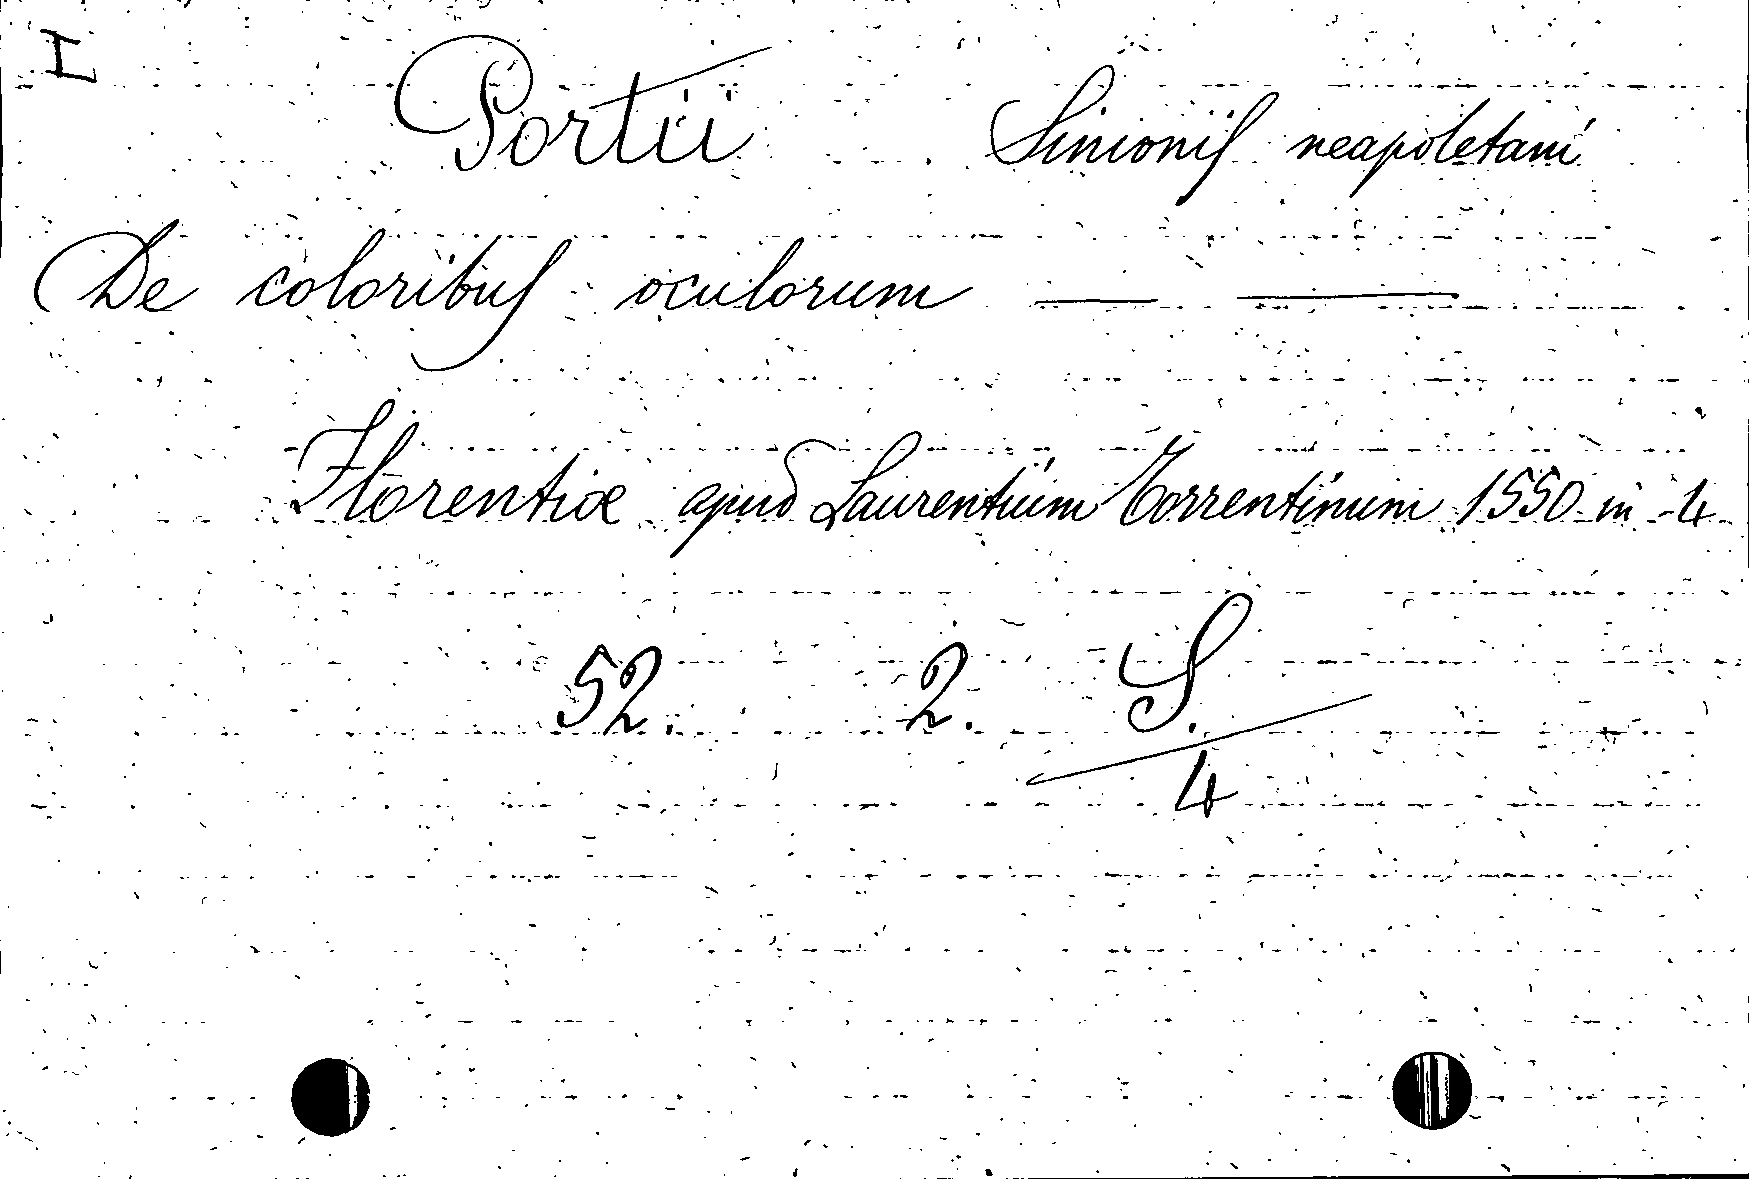 I
Portii Simonis neapoletani
De coloribus oculorum — —
Florentiæ apud Laurentium Torrentinum 1550 in 4
52. 2. S.
4